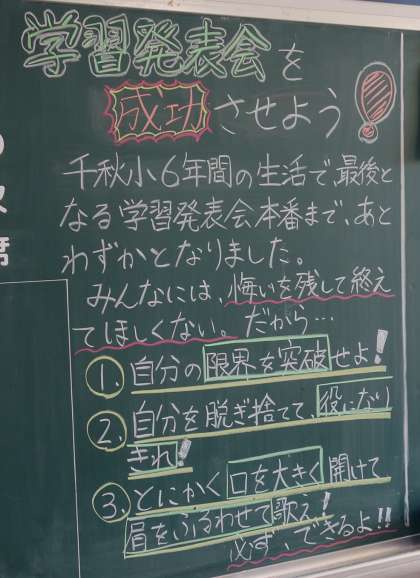 学習発表会を
成功させよう!
千秋小6年間の生活で、最後と
なる学習発表会本番まで、あと
わずかとなりました。
みんなには、悔いを残して終え
てほしくない。だから…
1. 自分の限界を突破せよ!
2. 自分を脱ぎ捨てて、役になり
きれ!
3. とにかく口を大きく開けて
肩をふるわせて歌え!
必ず、できるよ!!